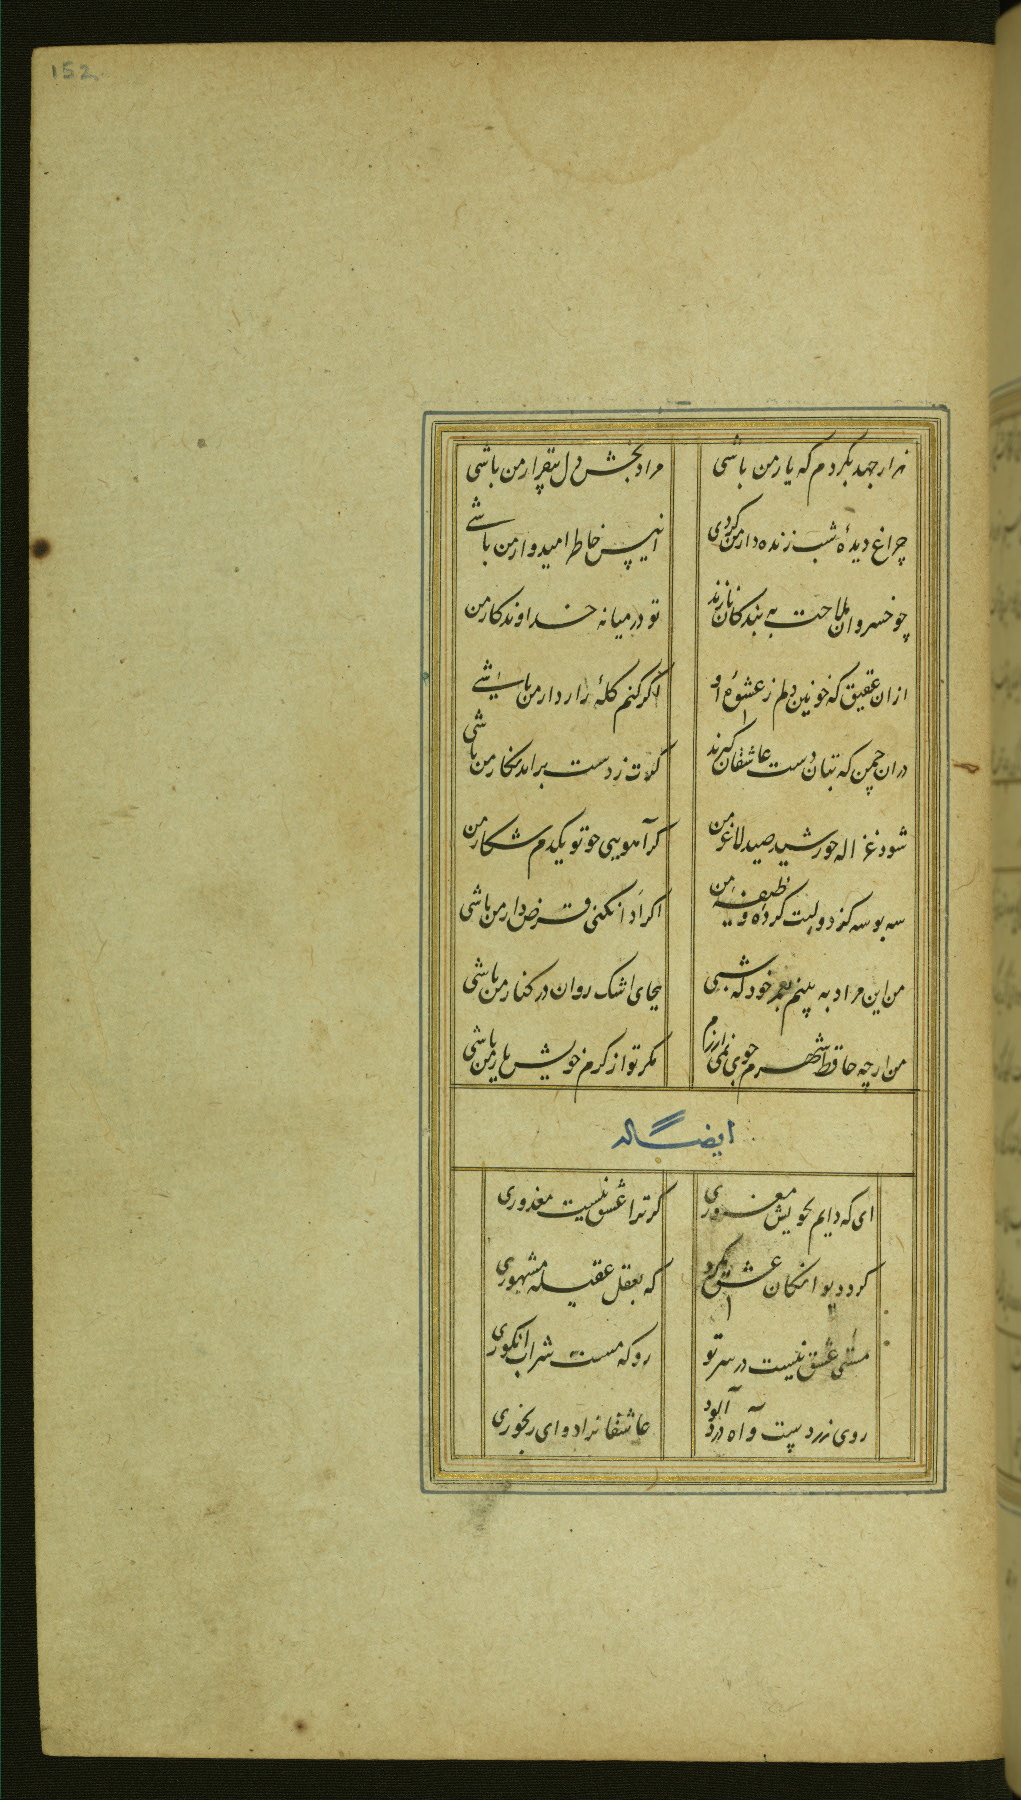 152
هزار جهد بکردم که یار من باشی
مراد بخش دل بیقرار من باشی
چراغ دیدهٔ شب زنده دار من کردی
انیس خاطر امیدوار من باشی
چو خسروان ملاحت به بندکان نازند
تو در میانه خداوندکار من
ازان عقیق که خونین دلم ز عشوهٔ او
اکر کنم کلهٔ راز دار من باشی
دران چمن که بتان دست عاشقان کیرند
کرت ز دست براید نکار من باشی
شود غزالهٔ خورشید صید لاغر من
کر آهویی چو تو یکدم شکار من
سه بوسه کز دو لبت کردهٔ وظیفهٔ من
اکر ادا نکنی قرض دار من باشی
من این مراد به بینم بعمر خود که شبی
بجای اشک روان در کنار من باشی
من ارچه حافظ شهرم جوی نمی ارزم
مکر تو از کرم خویش یار من باشی
ایضا له
ای که دایم بخویش مغروری
کر ترا عشق نیست معذوری
کرد دیوانکان عشق مکرد
که بعقل عقیله مشهوری
مستی عشق نیست در سر تو
رو که مست شراب انکوری
روی زردست و آه درد آلود
عاشقانرا دوای رنجوری